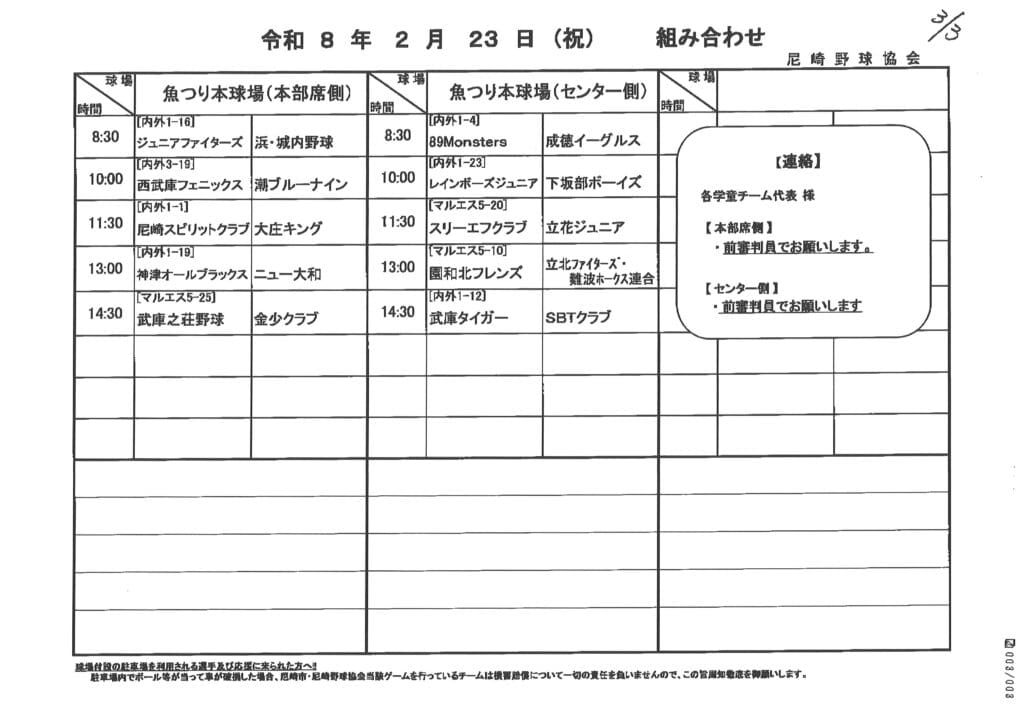 令和 8 年 2 月 23 日（祝） 組み合わせ
3/3
尼崎野球協会
球場 魚つり本球場（本部席側） 球場 魚つり本球場（センター側） 球場
時間 時間 時間
[内外1-16] [内外1-4]
8:30 ジュニアファイターズ 浜・城内野球 8:30 89Monsters 成徳イーグルス
[内外3-19] [内外1-23]
10:00 西武庫フェニックス 潮ブルーナイン 10:00 レインボーズジュニア 下坂部ボーイズ
[内外1-1] [マルエス5-20]
11:30 尼崎スピリットクラブ 大庄キング 11:30 スリーエフクラブ 立花ジュニア
[内外1-19] [マルエス5-10]
13:00 神津オールブラックス ニュー大和 13:00 園和北フレンズ 立北ファイターズ・
難波ホークス連合
[マルエス5-25] [内外1-12]
14:30 武庫之荘野球 金少クラブ 14:30 武庫タイガー SBTクラブ
【連絡】
各学童チーム代表 様
【本部席側】
・前審判員でお願いします。
【センター側】
・前審判員でお願いします
球場付設の駐車場を利用される選手及び応援に来られた方へ!!
駐車場内でボール等が当って車が破損した場合、尼崎市・尼崎野球協会当該ゲームを行っているチームは損害賠償について一切の責任を負いませんので、この旨周知徹底を御願いします。
003/003